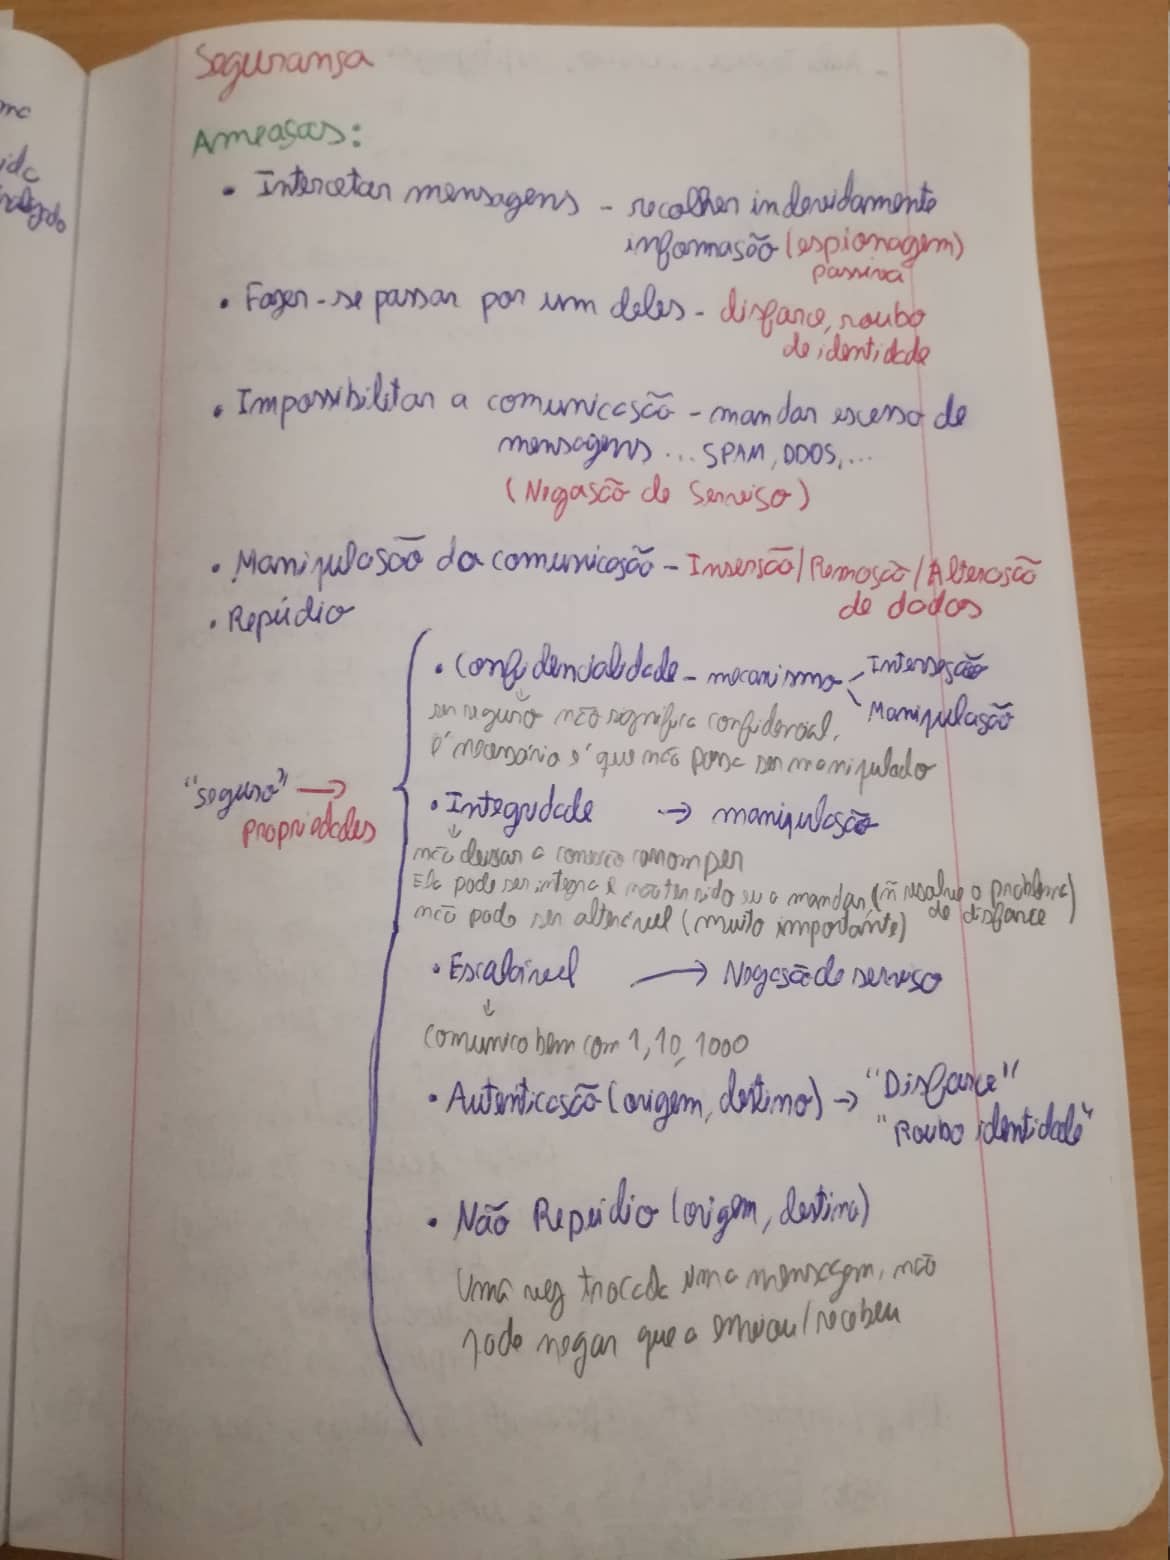 Segurança
Ameaças:
• Intercetar mensagens - recolher indevidamente
informação (espionagem)
passiva
• Fazer-se passar por um deles - disfarce, roubo
de identidade
• Impossibilitar a comunicação - mandar excesso de
mensagens ... SPAM, DDOS, ...
(Negação de Serviço)
• Manipulação da comunicação - Inserção/Remoção/Alteração
de dados
• Repúdio
• Confidencialidade - mecanismo Interseção
Manipulação
ser seguro não significa confidencial,
é necessário é que não possa ser manipulado
"seguro" →
propriedades
• Integridade → manipulação
não deixar a conexão corromper
Ela pode ser integra e não ter sido eu a mandar (ñ resolve o problema
de disfarce)
não pode ser alterável (muito importante)
• Escalável → Negação de serviço
comunico bem com 1, 10, 1000
• Autenticação (origem, destino) → "Disfarce"
"Roubo identidade"
• Não Repúdio (origem, destino)
Uma vez trocada uma mensagem, não
pode negar que a enviou/recebeu